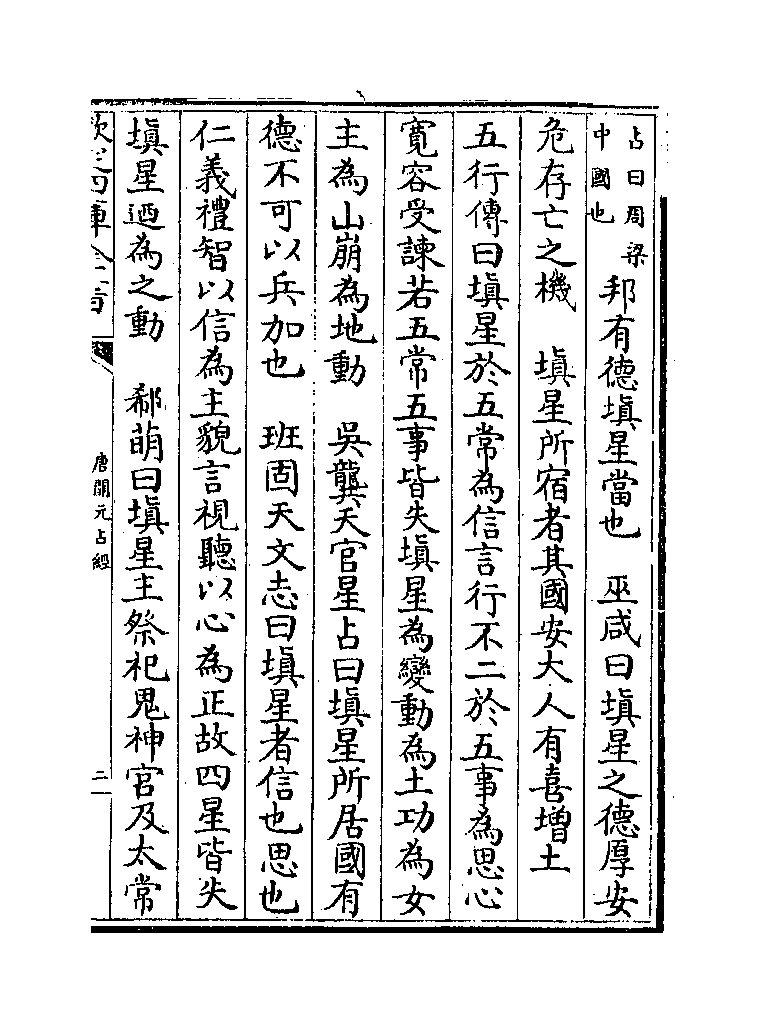 占曰周梁
中國也
邦有德填星當也　巫咸曰填星之德厚安
危存亡之機　填星所宿者其國安大人有喜增土
五行傳曰填星於五常為信言行不二於五事為思心
寛容受諫若五常五事皆失填星為變動為土功為女
主為山崩為地動　吳龔天官星占曰填星所居國有
德不可以兵加也　班固天文志曰填星者信也思也
仁義禮智以信為主貌言視聽以心為正故四星皆失
填星廼為之動　郗萌曰填星主祭祀鬼神官及太常
唐開元占經